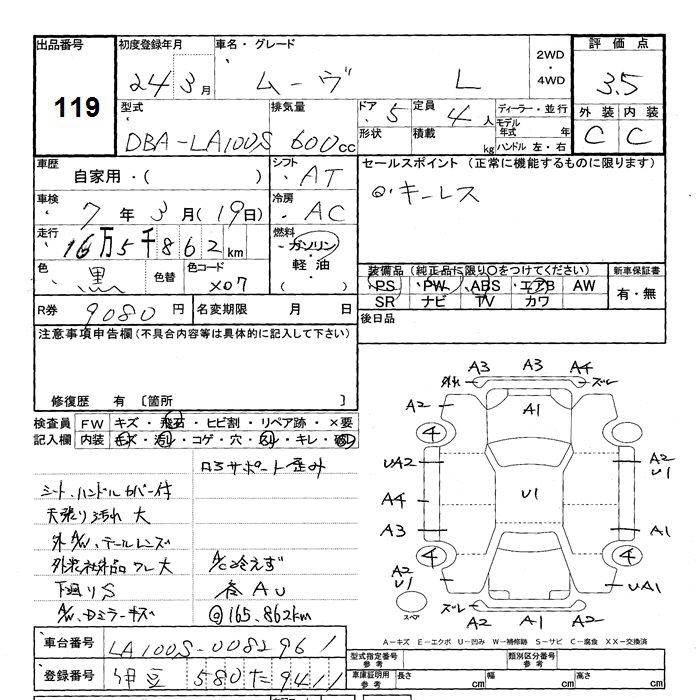 出品番号 初度登録年月 車名・グレード 2WD ・ 4WD 評価点
119 24 3月 ムーヴ L 3.5
型式 排気量 ドア 5 定員 4人 ディーラー・並行 外装 内装
DBA-LA100S 600cc 形状 積載 kg モデル年式 年 C C
ハンドル 左・右
車歴 シフト セールスポイント (正常に機能するものに限ります)
自家用・( ) AT ◎・キーレス
車検 7年 3月(19日) 冷房 AC
走行 16万5千862km 燃料 ガソリン・軽油・( )
色 黒 色替 色コード X07 装備品 (純正品に限り○をつけてください) 新車保証書
PS PW ABS エアB AW 有・無
SR ナビ TV カワ
R券 9080円 名変期限 月 日
後日品
注意事項申告欄(不具合内容等は具体的に記入して下さい)
修復歴 有 〔箇所 〕
検査員 FW キズ・飛石・ヒビ割・リペア跡・×要
記入欄 内装 キズ・汚・コゲ・穴・・キレ・
コアサポート歪み
シート、ハンドルカバー付
天張り汚れ 大
外A/W、テールレンズ
外装社外品 ワレ大 A/C冷えず
下廻りS 春AU
A/W、Dミラーキズ @165,862km
車台番号 LA100S-0082961
登録番号 伊豆 580 た 9411
A3 A3 A4
外れ ズレ
A2 A1
4
UA2 A2 U1
A4 U1
A3 A1
4 4
A2 U1 UA1
スペア ズレ A2 A1 A2
A-キズ E-エクボ U-凹み W-補修跡 S-サビ C-腐食 XX-交換済
型式指定番号 参考 類別区分番号 参考
車庫証明用 参考 長さ cm 幅 cm 高さ cm